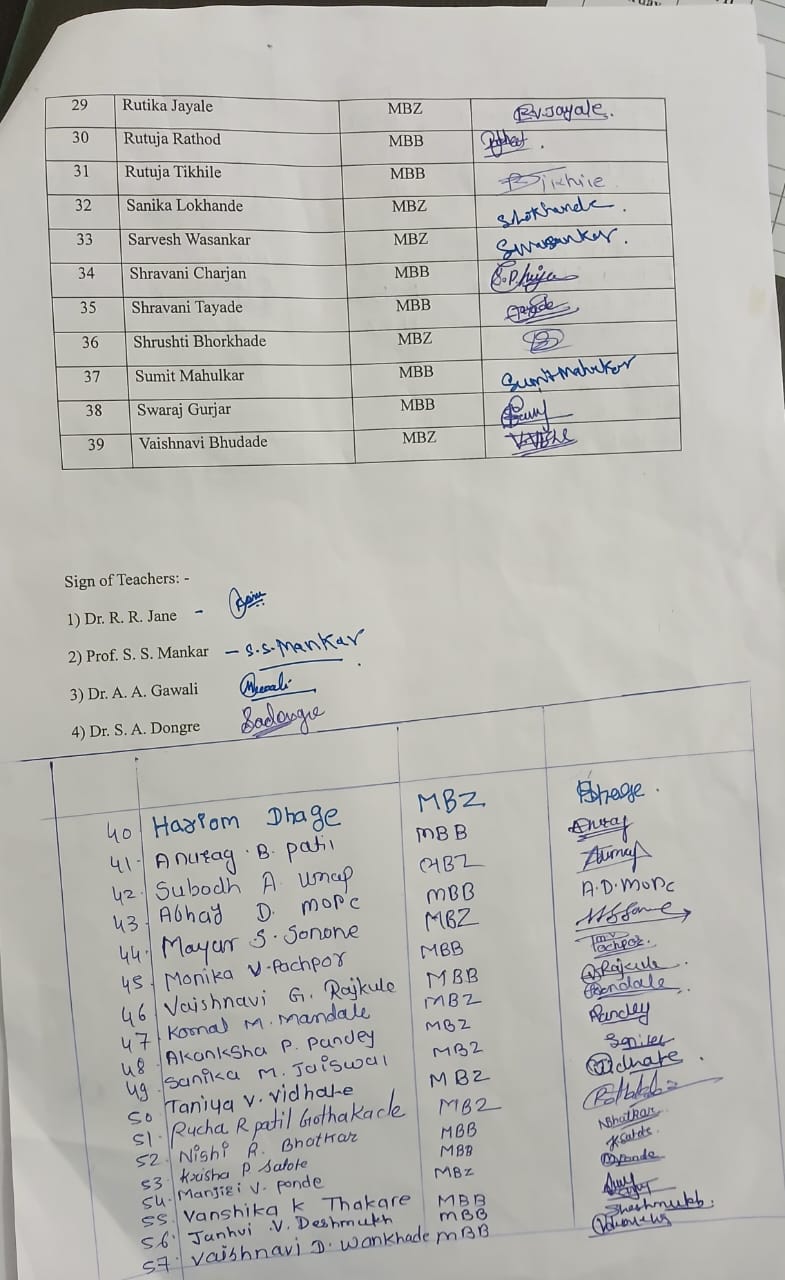 29 Rutika Jayale MBZ R.V.Jayale.
30 Rutuja Rathod MBB
31 Rutuja Tikhile MBB RTikhile
32 Sanika Lokhande MBZ SLokhande.
33 Sarvesh Wasankar MBZ SWasankar.
34 Shravani Charjan MBB
35 Shravani Tayade MBB
36 Shrushti Bhorkhade MBZ
37 Sumit Mahulkar MBB Sumit Mahulkar
38 Swaraj Gurjar MBB
39 Vaishnavi Bhudade MBZ
Sign of Teachers: -
1) Dr. R. R. Jane -
2) Prof. S. S. Mankar - S.S.Mankar
3) Dr. A. A. Gawali
4) Dr. S. A. Dongre Sadongre
40 Hariom Dhage MBZ Dhage.
41. Anurag B. patil MBB Anurag
42. Subodh A. Unap MBZ
43. Abhay D. More MBB A.D.More
44. Mayur S. Sonone MBZ
45. Monika V. Pachpor MBB Pachpor.
46 Vaishnavi G. Rajkule MBB Rajkule
47 Komal M. Mandale MBZ
48. Akanksha P. Pandey MBZ Pandey
49. Sanika M. Jaiswal MBZ
50 Taniya V. Vidhate MBZ Vidhate.
51. Rucha R patil Gothakade MBZ
52. Nishi R. Bhatkar MBB Nbhatkar
53. Krisha P Satote MBB
54. Manjiri V. Ponde MBZ
55. Vanshika K Thakare MBB
56. Janhvi V. Deshmukh MBB
57. Vaishnavi D. Wankhade MBB